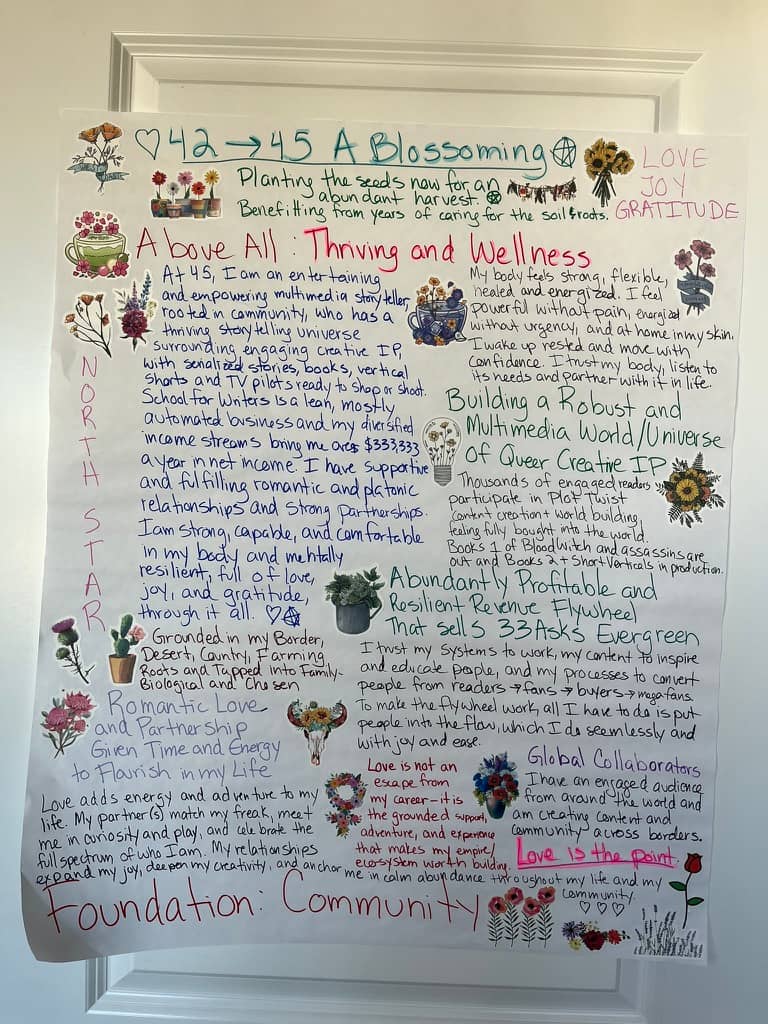 ♡ 42 → 45 A Blossoming
LOVE
JOY
GRATITUDE
Planting the seeds now for an
abundant harvest.
Benefitting from years of caring for the soil & roots.
Above All: Thriving and Wellness
NORTH STAR
At 45, I am an entertaining
and empowering multimedia storyteller
rooted in community, who has a
thriving storytelling universe
surrounding engaging creative IP,
with serialized stories, books, vertical
shorts and TV pilots ready to shop or shoot.
School for Writers is a lean, mostly
automated business and my diversified
income streams bring me over $333,333
a year in net income. I have supportive
and fulfilling romantic and platonic
relationships and strong partnerships.
I am strong, capable, and comfortable
in my body and mentally
resilient, full of love,
joy, and gratitude,
through it all. ♡
My body feels strong, flexible,
healed and energized. I feel
powerful without pain, energized
without urgency, and at home in my skin.
I wake up rested and move with
confidence. I trust my body, listen to
its needs and partner with it in life.
Building a Robust and
Multimedia World/Universe
of Queer Creative IP
Thousands of engaged readers
participate in Plot Twist
content creation + world building,
feeling fully bought into the world.
Books 1 of Bloodwitch and assassins are
out and Books 2 + Short Verticals in production.
Abundantly Profitable and
Resilient Revenue Flywheel
That sells 33 Asks Evergreen
I trust my systems to work, my content to inspire
and educate people, and my processes to convert
people from readers → fans → buyers → mega-fans.
To make the flywheel work, all I have to do is put
people into the flow, which I do seemlessly and
with joy and ease.
Grounded in my Border,
Desert, Country, Farming
Roots and Tapped into Family-
Biological and Chosen
Romantic Love
and Partnership
Given Time and Energy
to Flourish in my Life
Love adds energy and adventure to my
life. My partner(s) match my freak, meet
me in curiosity and play, and celebrate the
full spectrum of who I am. My relationships
expand my joy, deepen my creativity, and anchor me in calm abundance throughout my life and my
community.
♡ ♡ ♡
Love is not an
escape from
my career – it is
the grounded support,
adventure, and experience
that makes my empire/
ecosystem worth building.
Global Collaborators
I have an engaged audience
from around the world and
am creating content and
community across borders.
Love is the point.
Foundation: Community